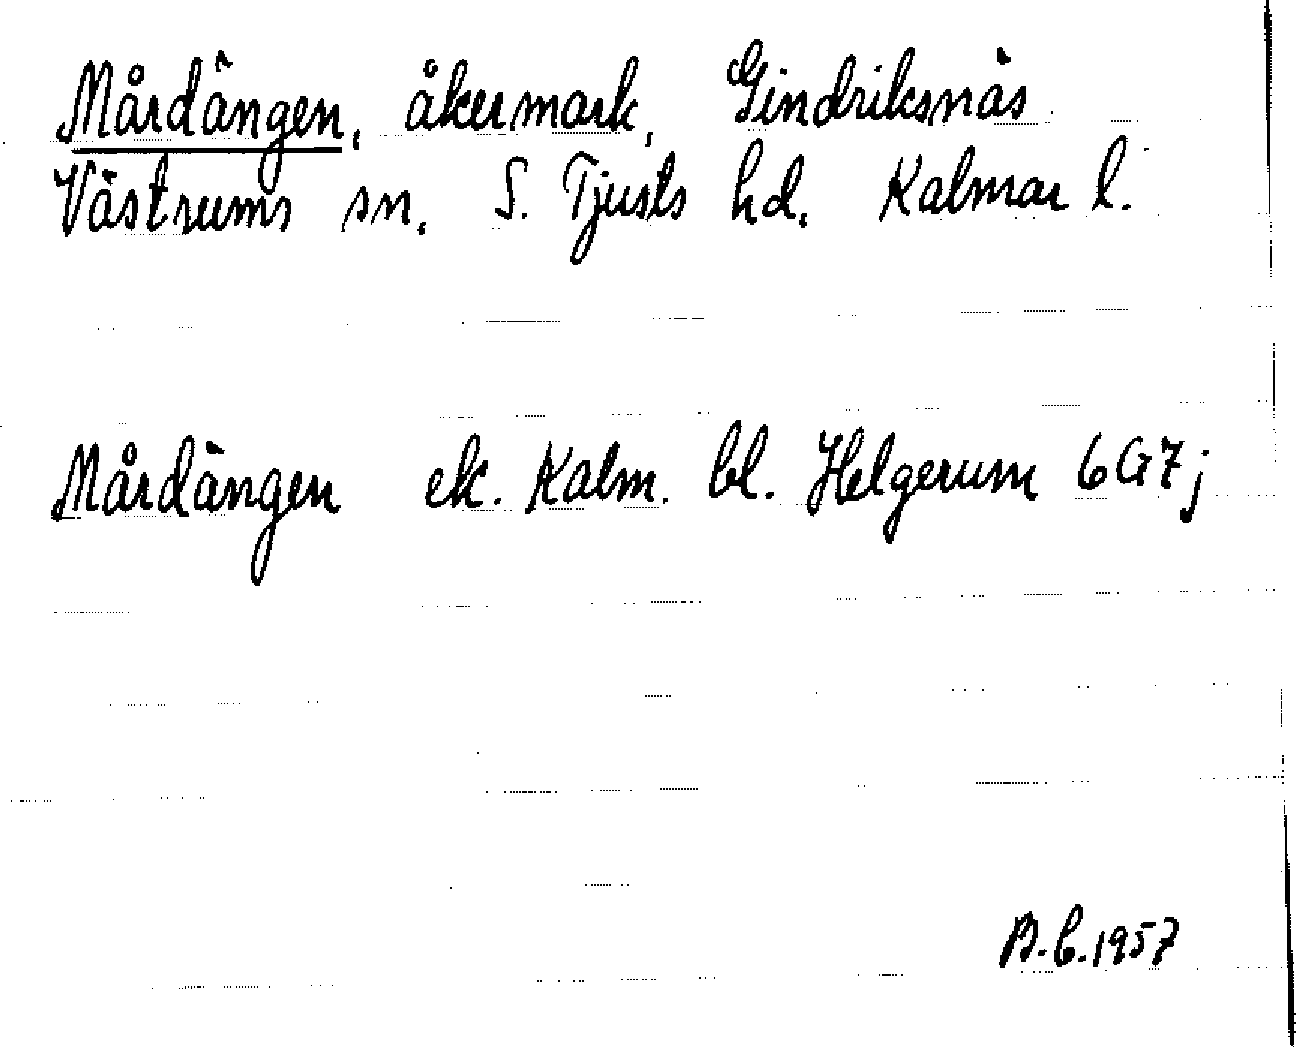 Mårdängen, åkermark, Gindriksnäs
Västrums sn. S. Tjusts hd. Kalmar l.
Mårdängen ek. Kalm. bl. Helgerum 6G7j
B.b.1957